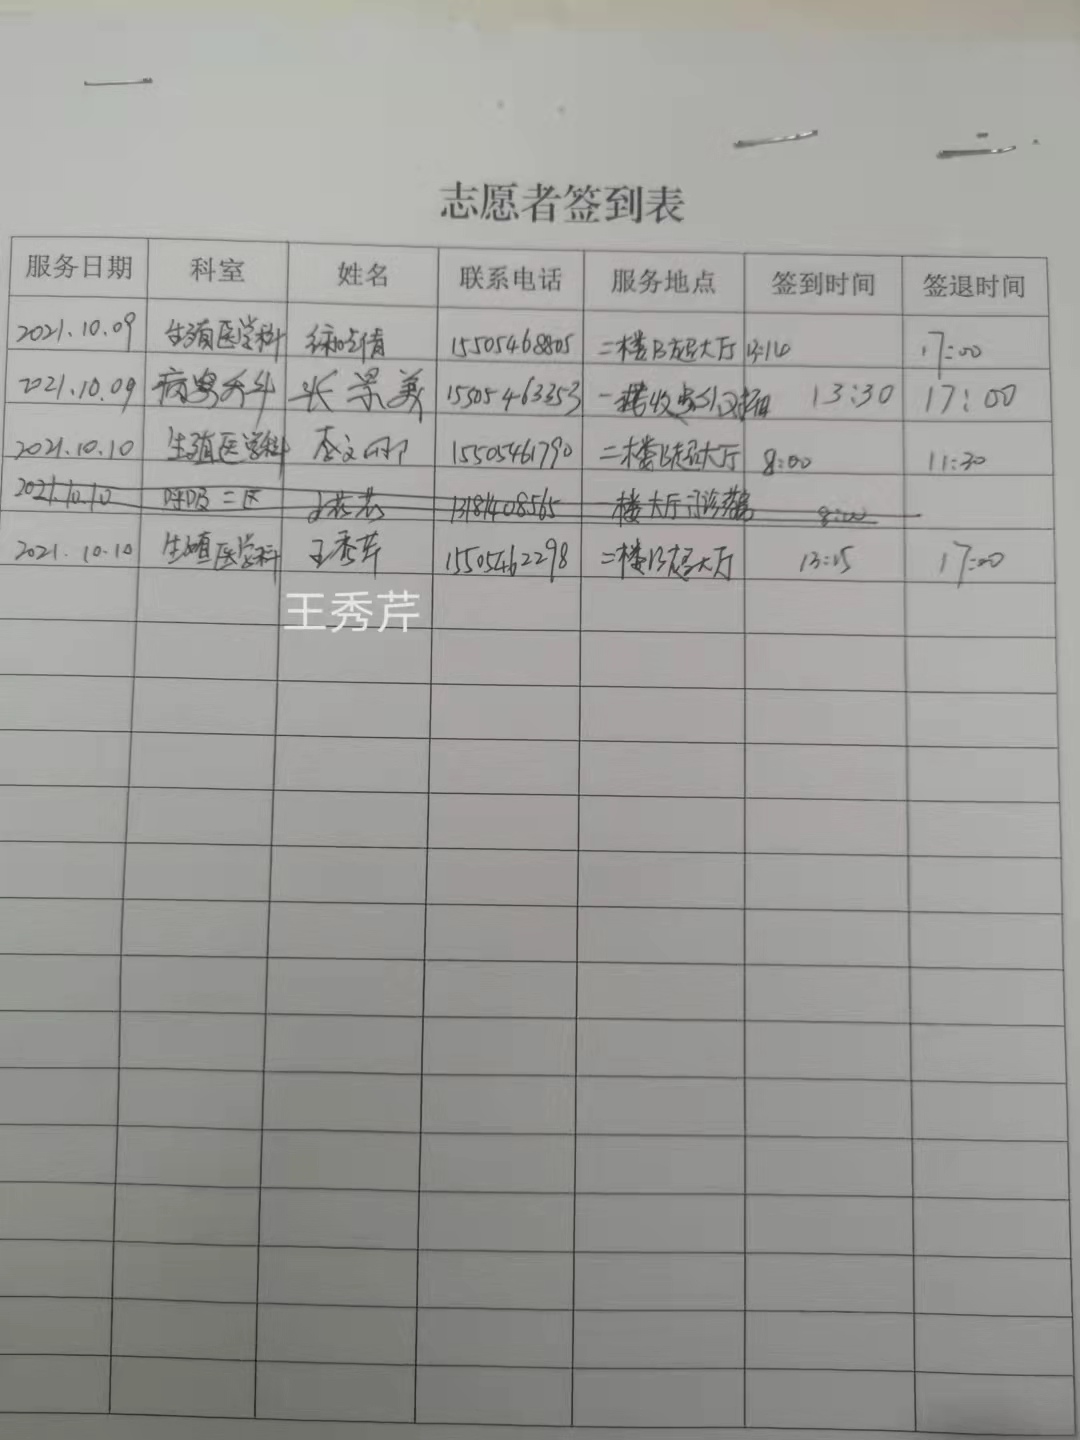 志愿者签到表
服务日期 科室 姓名 联系电话 服务地点 签到时间 签退时间
2021.10.09 生殖医学科 徐晓倩 15505468805 二楼B超大厅 13:14 17:00
2021.10.09 病案 张景美 15505463353 一楼收 13:30 17:00
2021.10.10 生殖医学科 李文 15505461790 二楼B超大厅 8:00 11:30
2021.10.10 呼吸二区 13181408565 一楼大厅 8:00
2021.10.10 生殖医学科 王秀芹 15505462298 二楼B超大厅 13:15 17:00
王秀芹